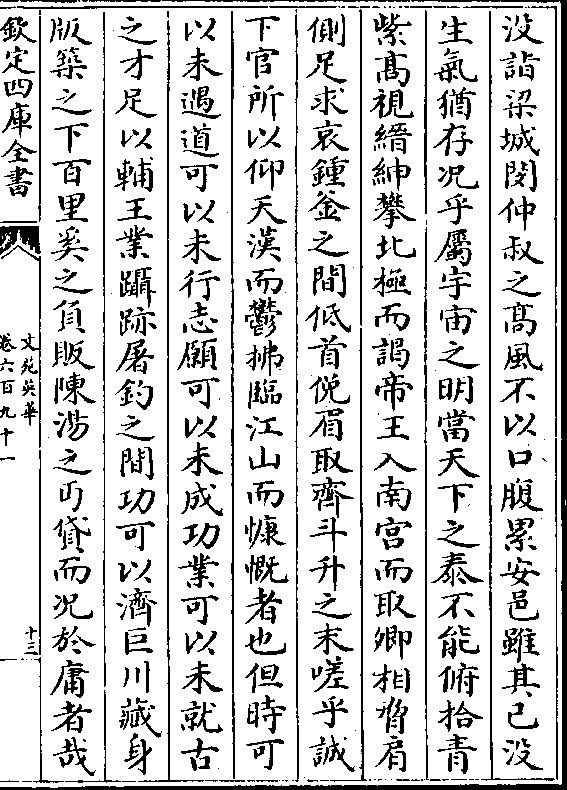 没詣梁城閔仲叔之髙風不以口腹累安邑雖其已没
生氣猶存况乎屬宇宙之明當天下之泰不能俯拾青
紫髙視縉紳攀北極而謁帝王入南宫而取卿相脅肩
側足求哀鍾釜之間低首俛眉取濟斗升之末嗟乎誠
下官所以仰天漢而鬱拂臨江山而慷慨者也但時可
以未遇道可以未行志願可以未成功業可以未就古
之才足以輔王業躡跡屠釣之間功可以濟巨川藏身
版築之下百里奚之負販陳湯之丐貸而况於庸者哉
欽定四庫全書
文苑英華
卷六百九十一
十三